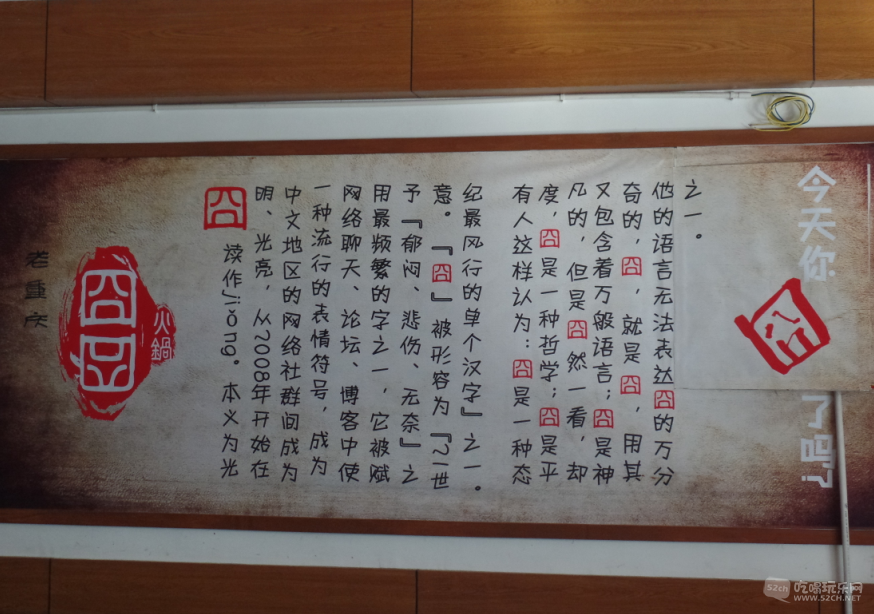 老重庆
囧囧
火鍋
囧 读作jiong。本义为光
明、光亮，从2008年开始在
中文地区的网络社群间成为
一种流行的表情符号，成为
网络聊天、论坛、博客中使
用最频繁的字之一，它被赋
予『郁闷、悲伤、无奈』之
意。『囧』被形容为『21世
纪最风行的单个汉字』之一。
有人这样认为：囧是一种态
度，囧是一种哲学；囧是平
凡的，但是囧然一看，却
又包含着万般语言；囧是神
奇的，囧，就是囧，用其
他的语言无法表达囧的万分
之一。
今天你囧了吗?
52ch 吃喝玩乐网
WWW.52CH.NET